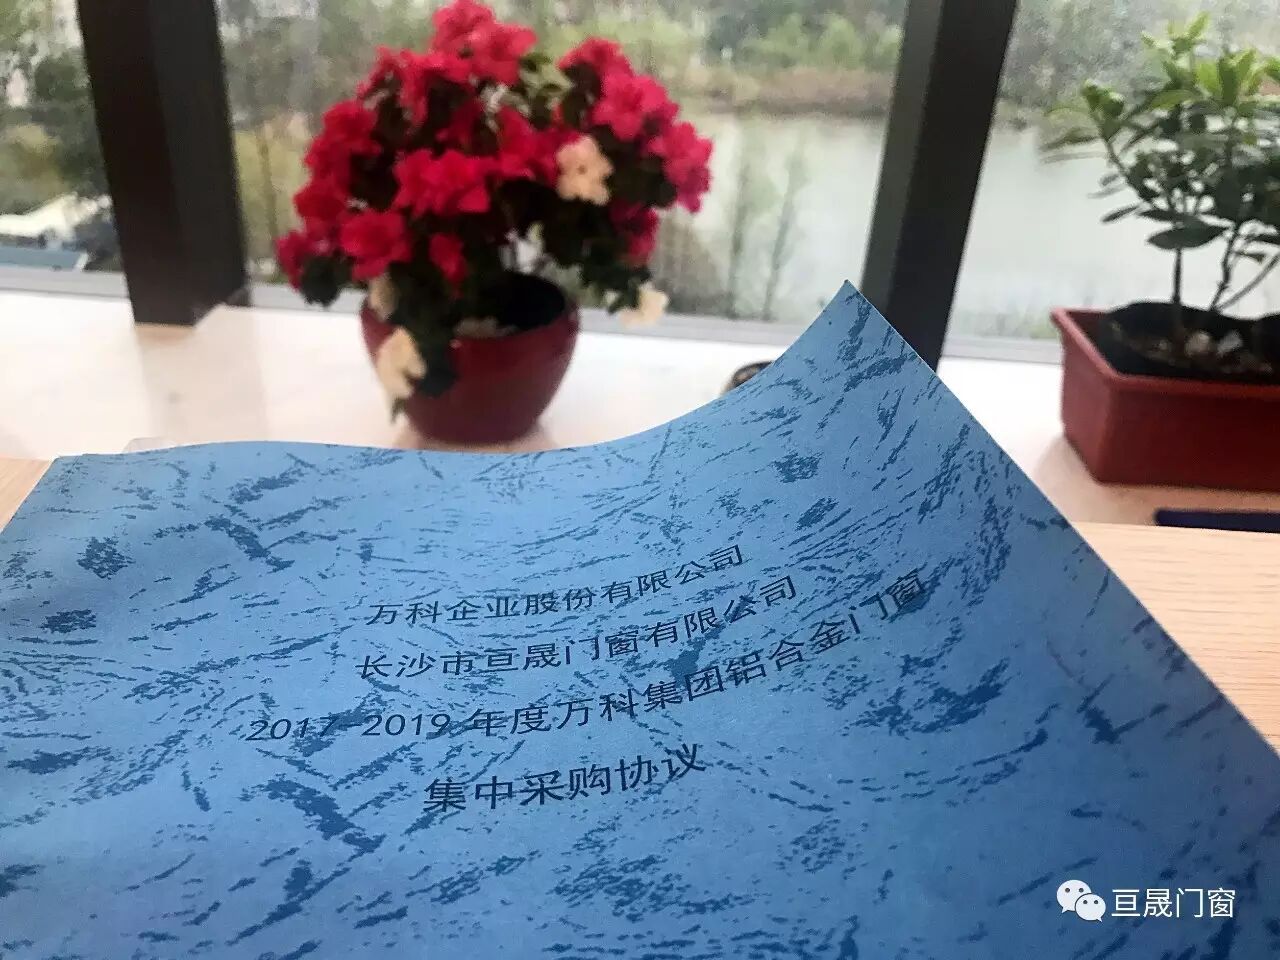 万科企业股份有限公司
长沙市亘晟门窗有限公司
2017-2019年度万科集团铝合金门窗
集中采购协议
亘晟门窗